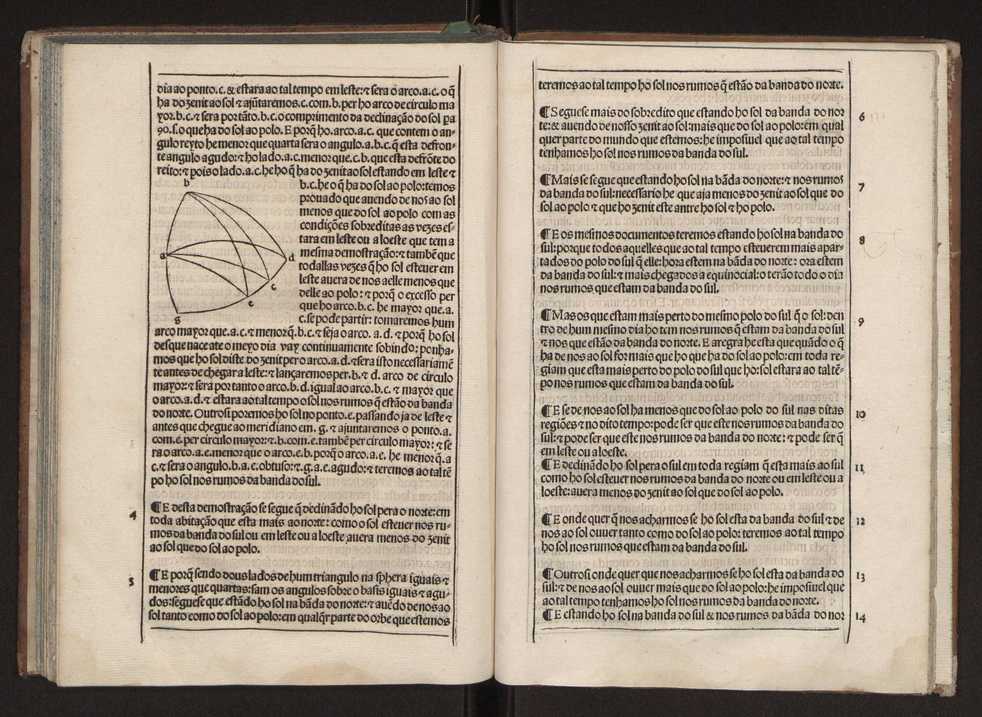 dia ao ponto.c.& estara ao tal tempo em leste:⁊ sera o arco.a.c.o q̃
ha do zenit ao sol ⁊ ajũtaremos.c.com.b.per ho arco de circulo ma
yor.b.c.⁊ sera portãto.b.c.o comprimento da declinação do sol pa
90.s.o que ha do sol ao polo. E porq̃ ho.arco.a.c. que contem o an-
gulo reyto he menor que quarta sera o angulo.a.b.c.q̃ esta defron-
te angulo agudo:⁊ ho lado.a.c.menor que.c.b.que esta defrõte do
reito:⁊ pois o lado.a.c.he ho q̃ ha do zenit ao sol estando em leste ⁊
b.c.he o q̃ ha do sol ao polo:temos
prouado que auendo de nos ao sol
menos que do sol ao polo com as
condições sobreditas as vezes es-
tara em leste ou a loeste que tem a
mesma demostração:⁊ tambẽ que
todallas vezes q̃ ho sol esteuer em
leste auera de nos a elle menos que
delle ao polo:⁊ porq̃ o excesso per
que ho arco.b.c. he mayor que.a.
c.se pode partir: tomaremos hum
b
a
d
c
e
g
arco mayor que.a.c.⁊ menor q̃.b.c.⁊ seja o arco. a.d.⁊ porq̃ ho sol
des que nace ate o meyo dia vay continuamente sobindo:ponha-
mos que ho sol diste do zenit per o arco.a.d.⁊ sera isto necessariamẽ
te antes de chegar a leste:⁊ lançaremos per.b.⁊ d. arco de circulo
mayor:⁊ sera por tanto o arco.b.d.igual ao arco.b.c.⁊ mayor que
o arco.a.d.⁊ estara ao tal tempo o sol nos rumos q̃ estão da banda
do norte. Outrosi poremos ho sol no ponto.e.passando ja de leste ⁊
antes que chegue ao meridiano em.g.⁊ ajuntaremos o ponto.a.
com.e.per circulo mayor:⁊.b.com.e.tambẽ per circulo mayor:⁊ se
ra o arco.a.e.menor que o arco.e.b.porq̃ o arco.a.e. he menor q̃.a
c.⁊ sera o angulo.b.a.e.obtuso:⁊.g.a.e.agudo:⁊ teremos ao tal tẽ
po ho sol nos rumos da banda do sul.
4
¶ E desta demostração se segue q̃ declinãdo ho sol pera o norte:em
toda abitação que esta mais ao norte: como o sol esteuer nos ru-
mos da banda do sul ou em leste ou a loeste auera menos do zenit
ao sol que do sol ao polo.
5
¶ E porq̃ sendo dous lados de hum triangulo na sphera iguais ⁊
menores que quartas:sam os angulos sobre o basis iguais ⁊ agu-
dos:segue se que estãdo ho sol na bãda do norte:⁊ auẽdo de nos ao
sol tanto como do sol ao polo:em qualq̃r parte do orbe que estemos
teremos ao tal tempo hõ sol nos rumos q̃ estão da banda do norte.
¶ Segue se mais do sobredito que estando ho sol da banda do nor 6
te:& auendo de nosso zenit ao sol:mais que do sol ao polo:em qual
quer parte do mundo que estemos:he impossiuel que ao tal tempo
tenhamos ho sol nos rumos da banda do sul.
¶ Mais se segue que estando ho sol na bãda do norte:⁊ nos rumos 7
da banda do sul:necessario he que aja menos do zenit ao sol que do
sol ao polo ⁊ que ho zenit este antre ho sol ⁊ ho polo.
¶ E os mesmos documentos teremos estando ho sol na banda do 8
sul:porque todos aquelles que ao tal tempo esteuerem mais apar-
tados do polo do sul q̃ elle:hora estem na bãda do norte: ora estem
da banda do sul:⁊ mais chegados a equinocial:o terão todo o dia
nos rumos que estam da banda do sul.
¶ Mas os que estam mais perto do mesmo polo do sul q̃ o sol:den 9
tro de hum mesmo dia ho tem nos rumos q̃ estam da banda do sul
⁊ nos que estão da banda do norte. E a regra he esta que quãdo o q̃
ha de nos ao sol for mais que ho que ha do sol ao polo:em toda re-
giam que esta mais perto do polo do sul que ho:sol estara ao tal tẽ-
po nos rumos que estam da banda do sul.
¶ E se de nos ao sol ha menos que do sol ao polo do sul nas ditas 10
regiões ⁊ no dito tempo:pode ser que este nos rumos da banda do
sul:⁊ pode ser que este nos rumos da banda do norte: ⁊ pode ser q̃
em leste ou a loeste.
¶ E declinãdo ho sol pera o sul em toda regiam q̃ esta mais ao sul 11
como ho sol esteuer nos rumos da banda do norte ou em leste ou a
loeste:auera menos do zenit ao sol que do sol ao polo.
¶ E onde quer q̃ nos acharmos se ho sol esta da banda do sul ⁊ de 12
nos ao sol ouuer tanto como do sol ao polo: teremos ao tal tempo
ho sol nos rumos que estam da banda do sul.
¶ Outrosi onde quer que nos acharmos se ho sol esta da banda do 13
sul:⁊ de nos ao sol ouuer mais que do sol ao polo:he impossiuel que
ao tal tempo tenhamos ho sol nos rumos da banda do norte.
¶ E estando ho sol na banda do sul & nos rumos da bãda do nor 14